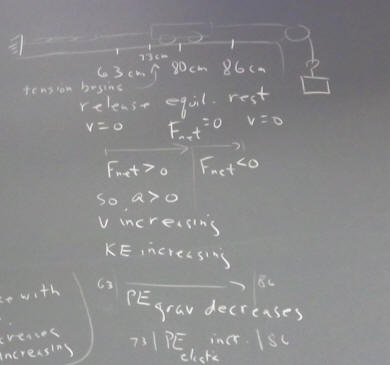 73cm
63cm 80cm 86cm
tension begins
release equil. rest
v=0 Fnet=0 v=0
Fnet>0 Fnet<0
so a>0
v increasing
KE increasing
63 86
PE grav decreases
73 | PE elastic incr. | 86
with
creases
increasing